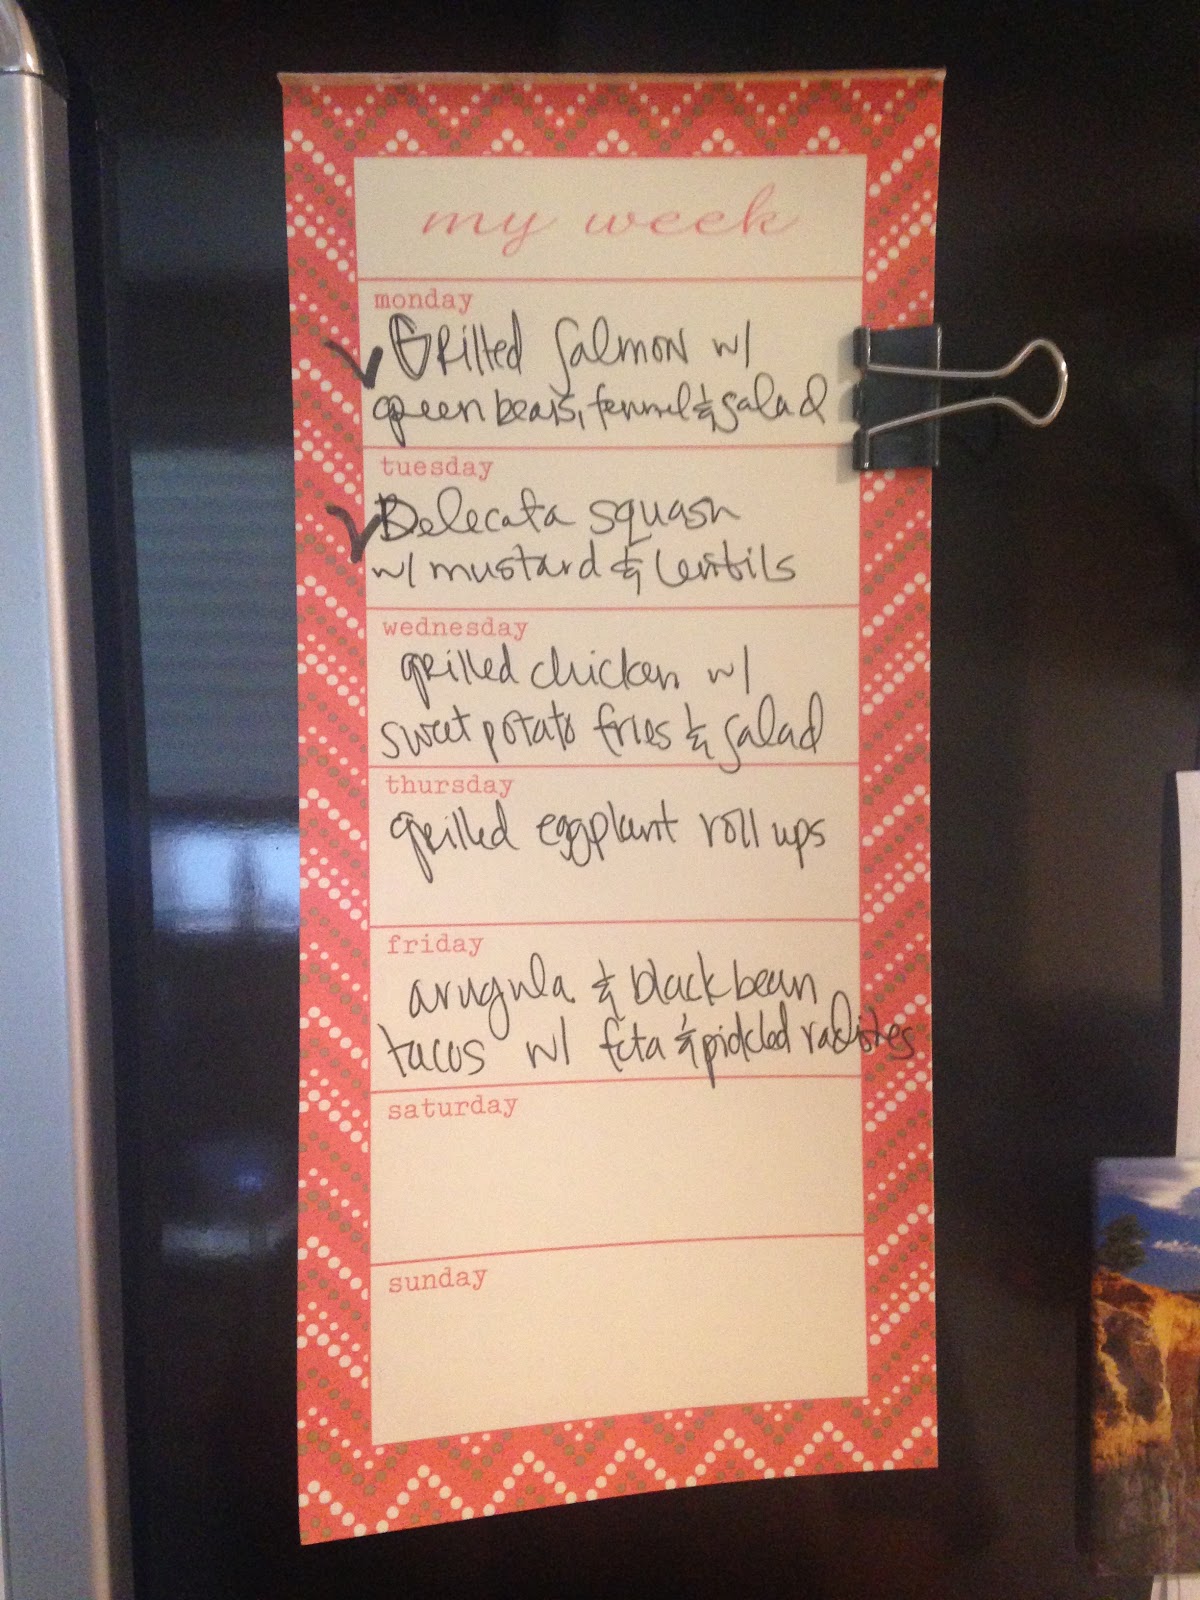 my week
monday
Grilled Salmon w/
green beans, fennel & salad
tuesday
Delecata squash
w/ mustard & lentils
wednesday
grilled chicken w/
sweet potato fries & salad
thursday
grilled eggplant roll ups
friday
arugula & black bean
tacos w/ feta & pickled radishes
saturday
sunday